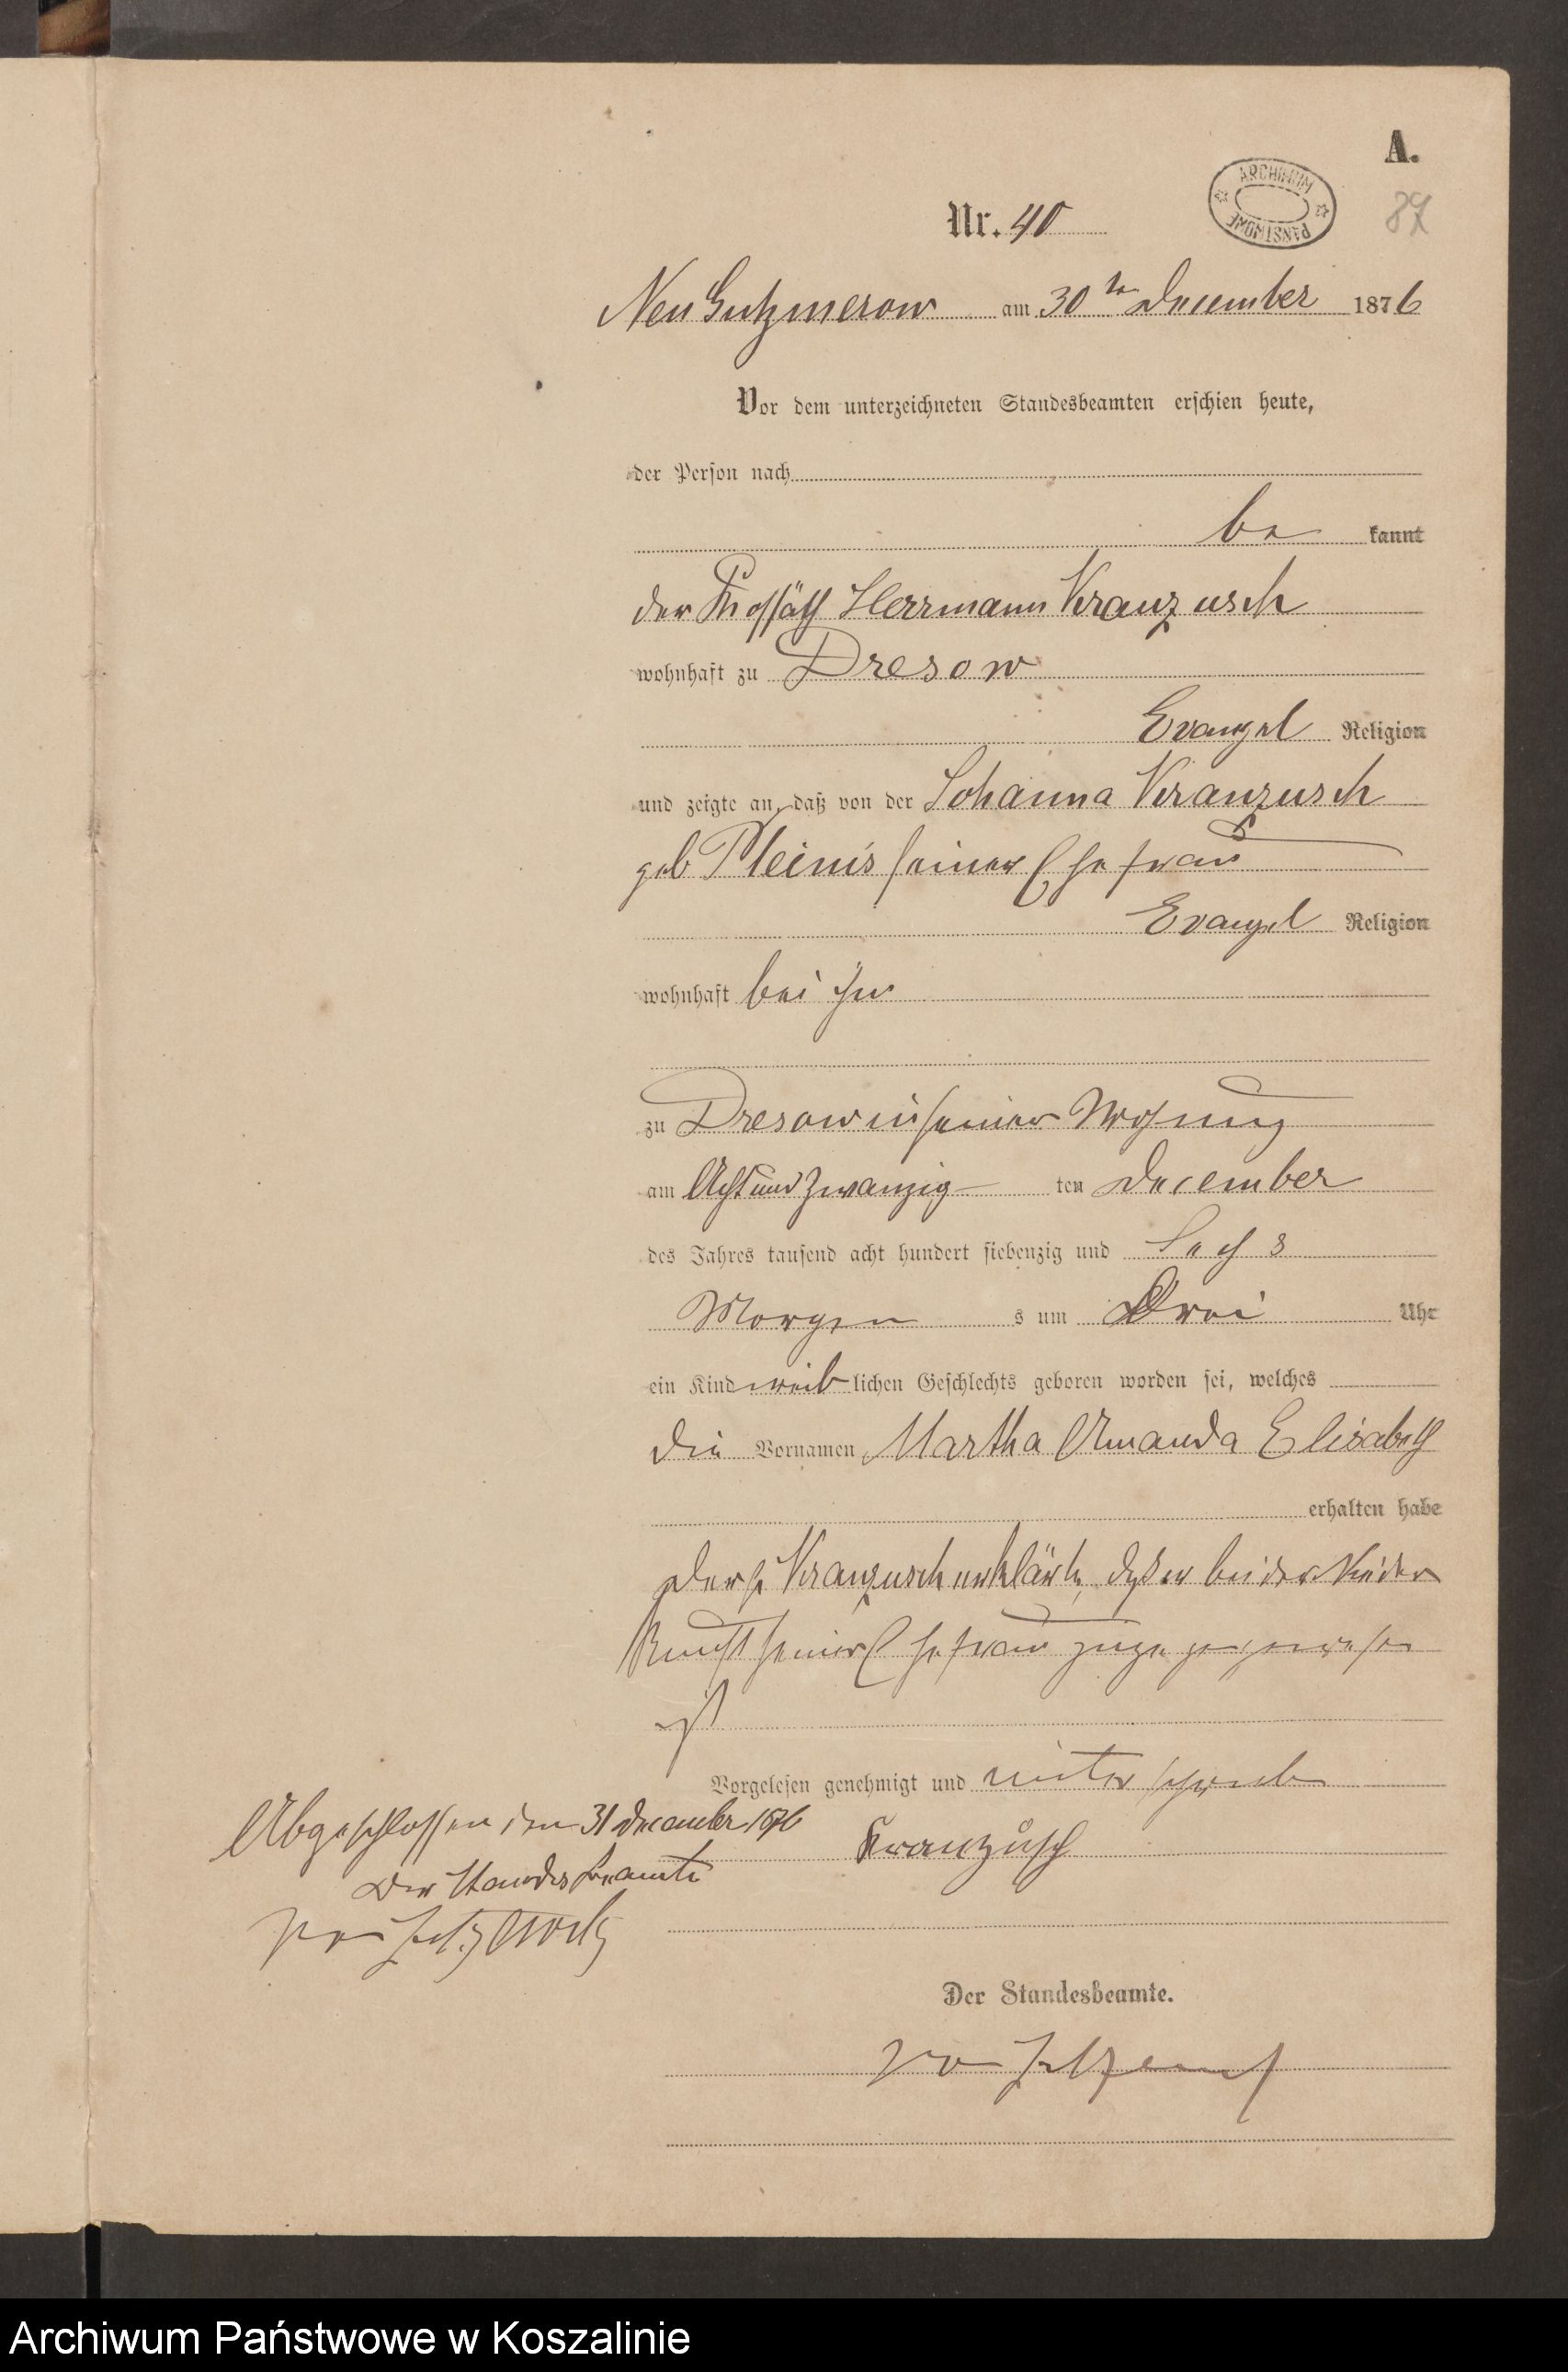 A.
ARCHIWUM PAŃSTWOWE
87
Nr. 40
Neu Gutzmerow am 30ten December 1876
Vor dem unterzeichneten Standesbeamten erschien heute,
der Person nach
be kannt
der Kossäth Herrmann Kranzusch
wohnhaft zu Dresow
Evangel Religion
und zeigte an, daß von der Johanna Kranzusch
geb Pleins seiner Ehefrau
Evangel Religion
wohnhaft bei ihm
zu Dresow in seiner Wohnung
am Acht und zwanzig ten December
des Jahres tausend acht hundert siebenzig und Sechs
Morgen s um Drei Uhr
ein Kind weib lichen Geschlechts geboren worden sei, welches
die Vornamen Martha Amanda Elisabeth
erhalten habe
Kranzusch erklärte, daß er bei der Nieder
kunft seiner Ehefrau zugegen gewesen
ist
Vorgelesen genehmigt und unterschrieb
Kranzusch
Abgeschlossen den 31 December 1876
Der Standesbeamte
von
Der Standesbeamte.
von
Archiwum Państwowe w Koszalinie